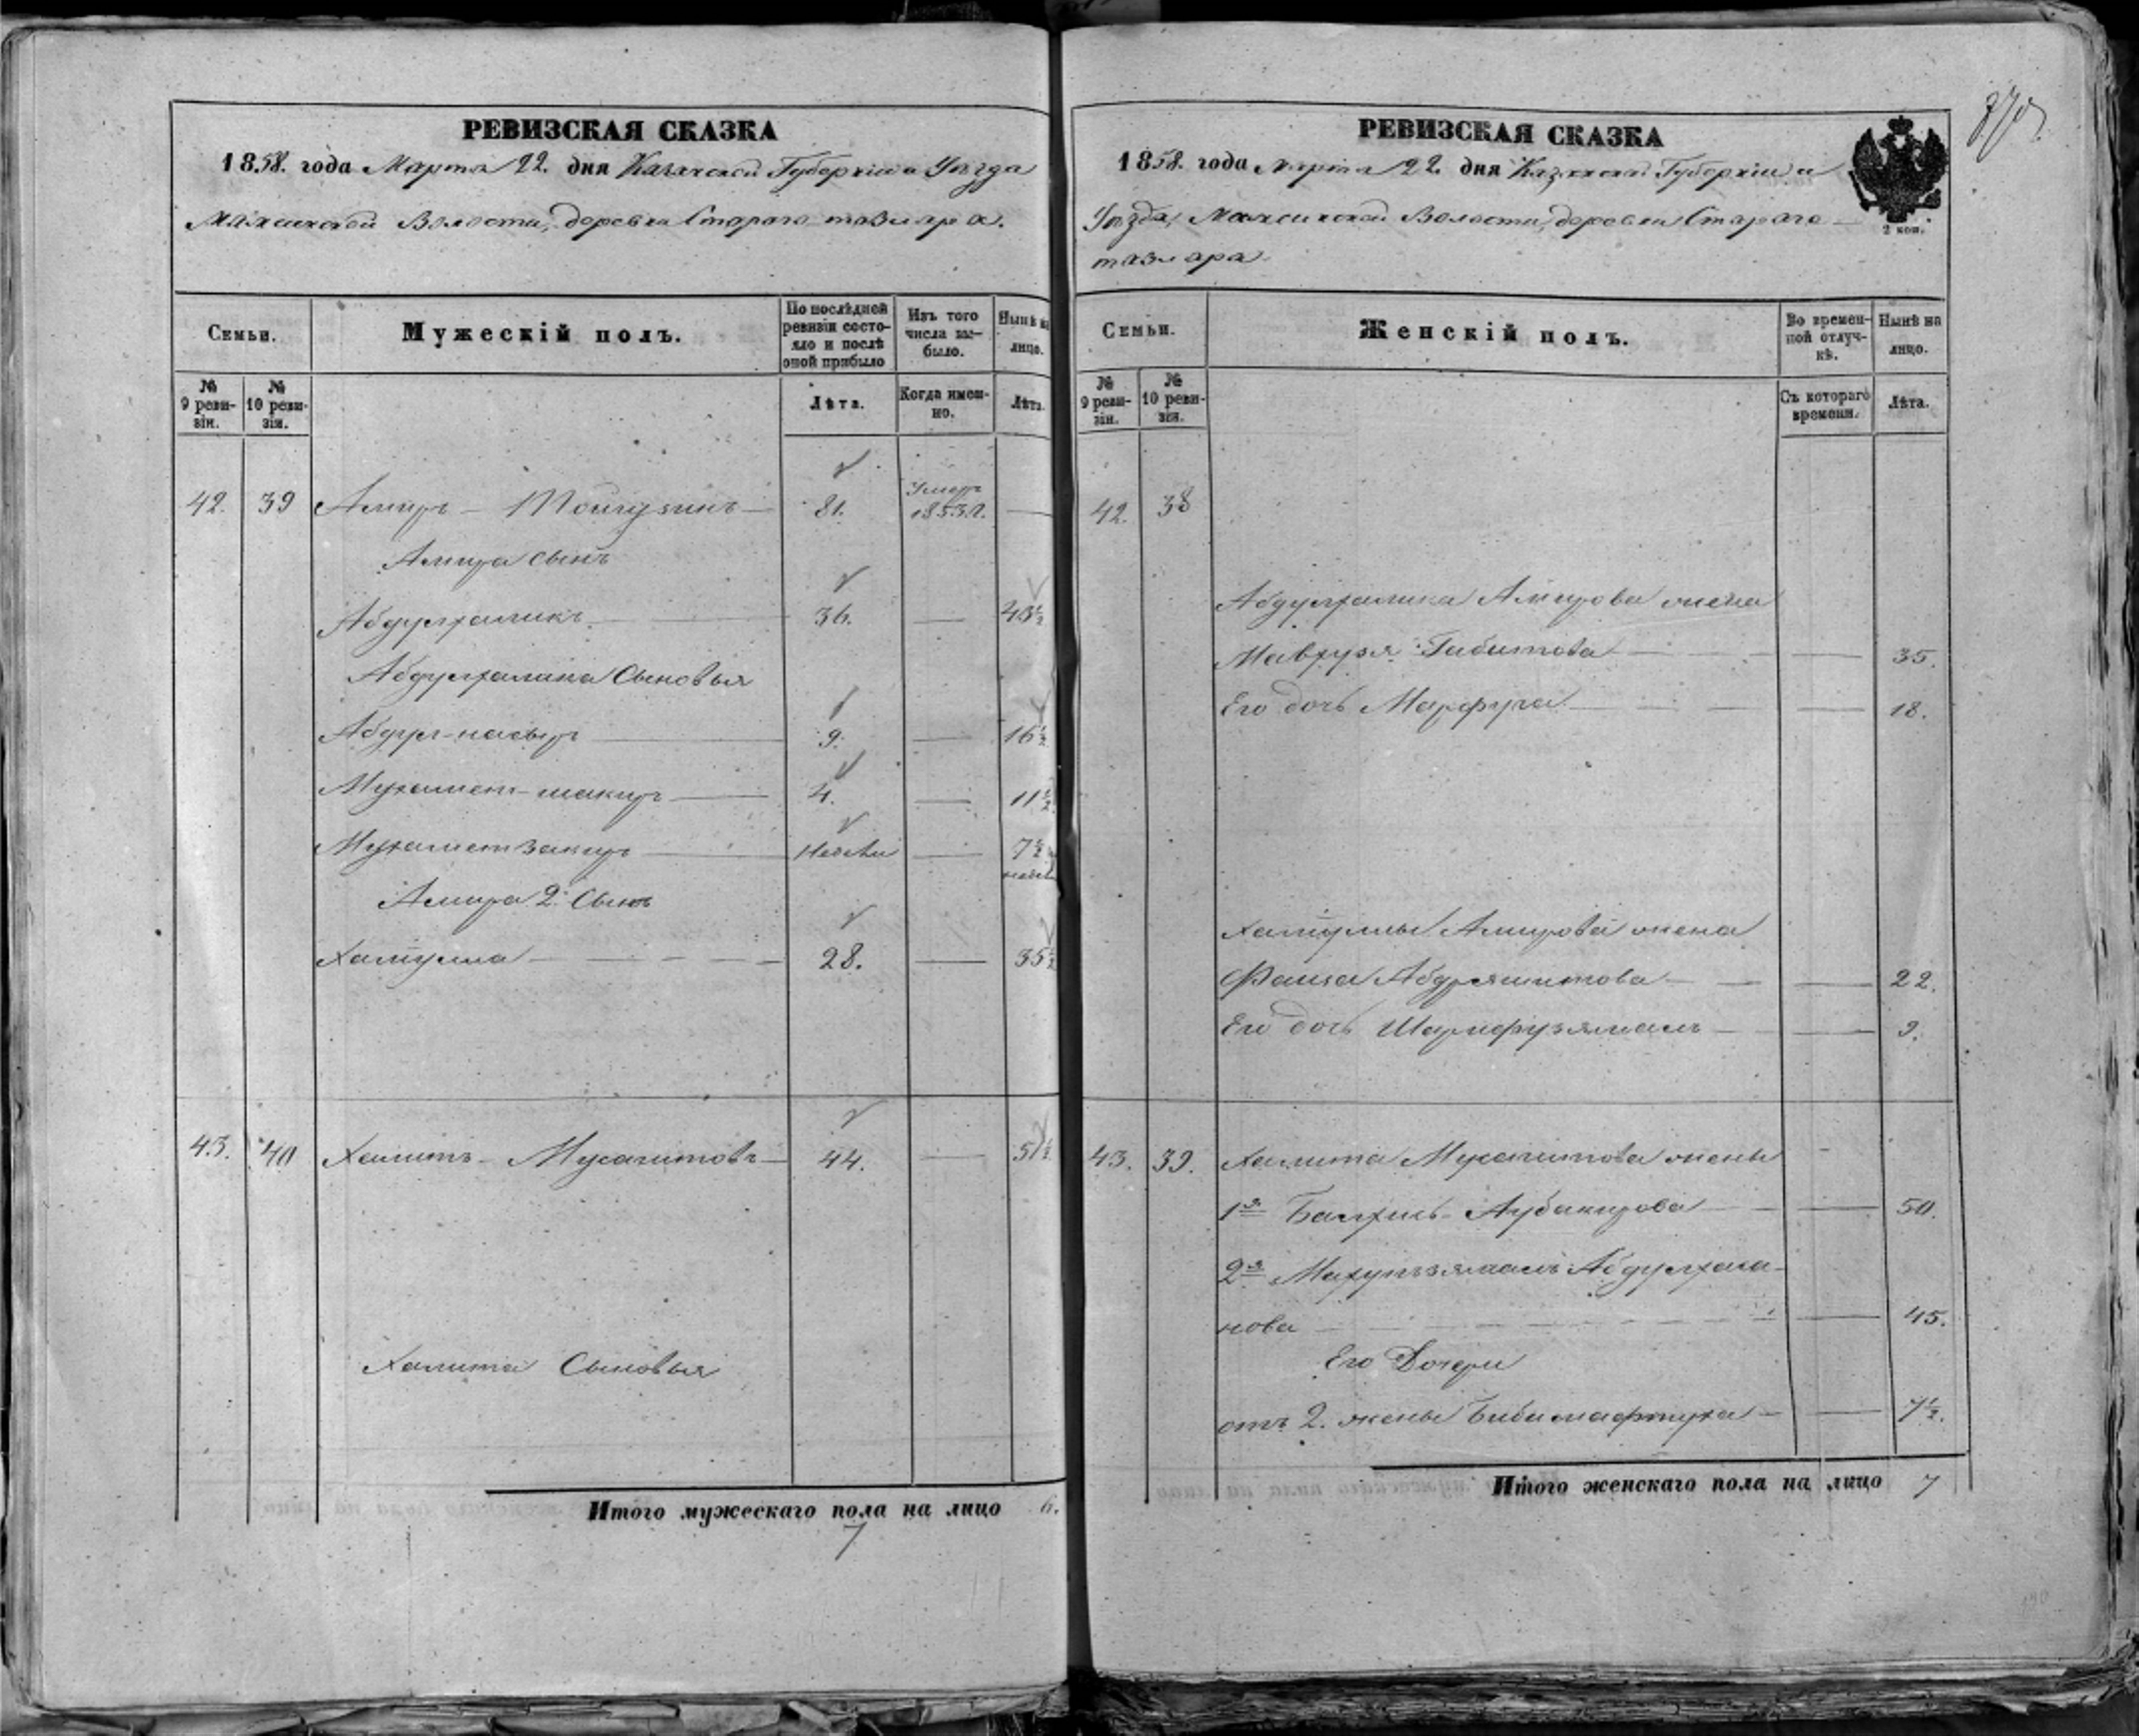 РЕВИЗСКАЯ СКАЗКА
1858. года Марта 22. дня Казанской Губерніи и Уѣзда
Волости, деревни Стараго
Семьи.
Мужескій полъ.
По послѣдней ревизіи состояло и послѣ оной прибыло
Изъ того числа выбыло.
Нынѣ на лицо.
№ 9 ревизіи.
№ 10 ревизіи.
Лѣта.
Когда именно.
Лѣта.
42. 39 Амиръ — 81. Умеръ 1853 г. —
Амира сынъ
Абдулхаликъ — 36. — 43½
Абдулхалика Сыновья
Абдул-насыр — 9. — 16½
Мухамет-шакир — 4. — 11½
Мухаметзакир — — 7½
Амира 2. Сынъ
28. — 35½
43. 40 Хамитъ — 44. — 51½
Хамита Сыновья
Итого мужескаго пола на лицо 6.
7
РЕВИЗСКАЯ СКАЗКА
1858. года Марта 22. дня Казанской Губерніи и
Уѣзда, Волости, деревни Стараго
2 коп.
Семьи.
Женскій полъ.
Во временной отлучкѣ.
Нынѣ на лицо.
№ 9 ревизіи.
№ 10 ревизіи.
Съ котораго времени.
Лѣта.
42. 38
Абдулхалика Амирова жена
Габитова — — 35.
Его дочь Марфуга — — 18.
Амирова жена
Фаиза Абдряшитова — — 22.
Его дочь — — 9.
43. 39. Хамита жены
1я Аубакирова — — 50.
2я Абдулхана-
нова — — 45.
Его Дочери
отъ 2. жены — — 7½.
Итого женскаго пола на лицо 7